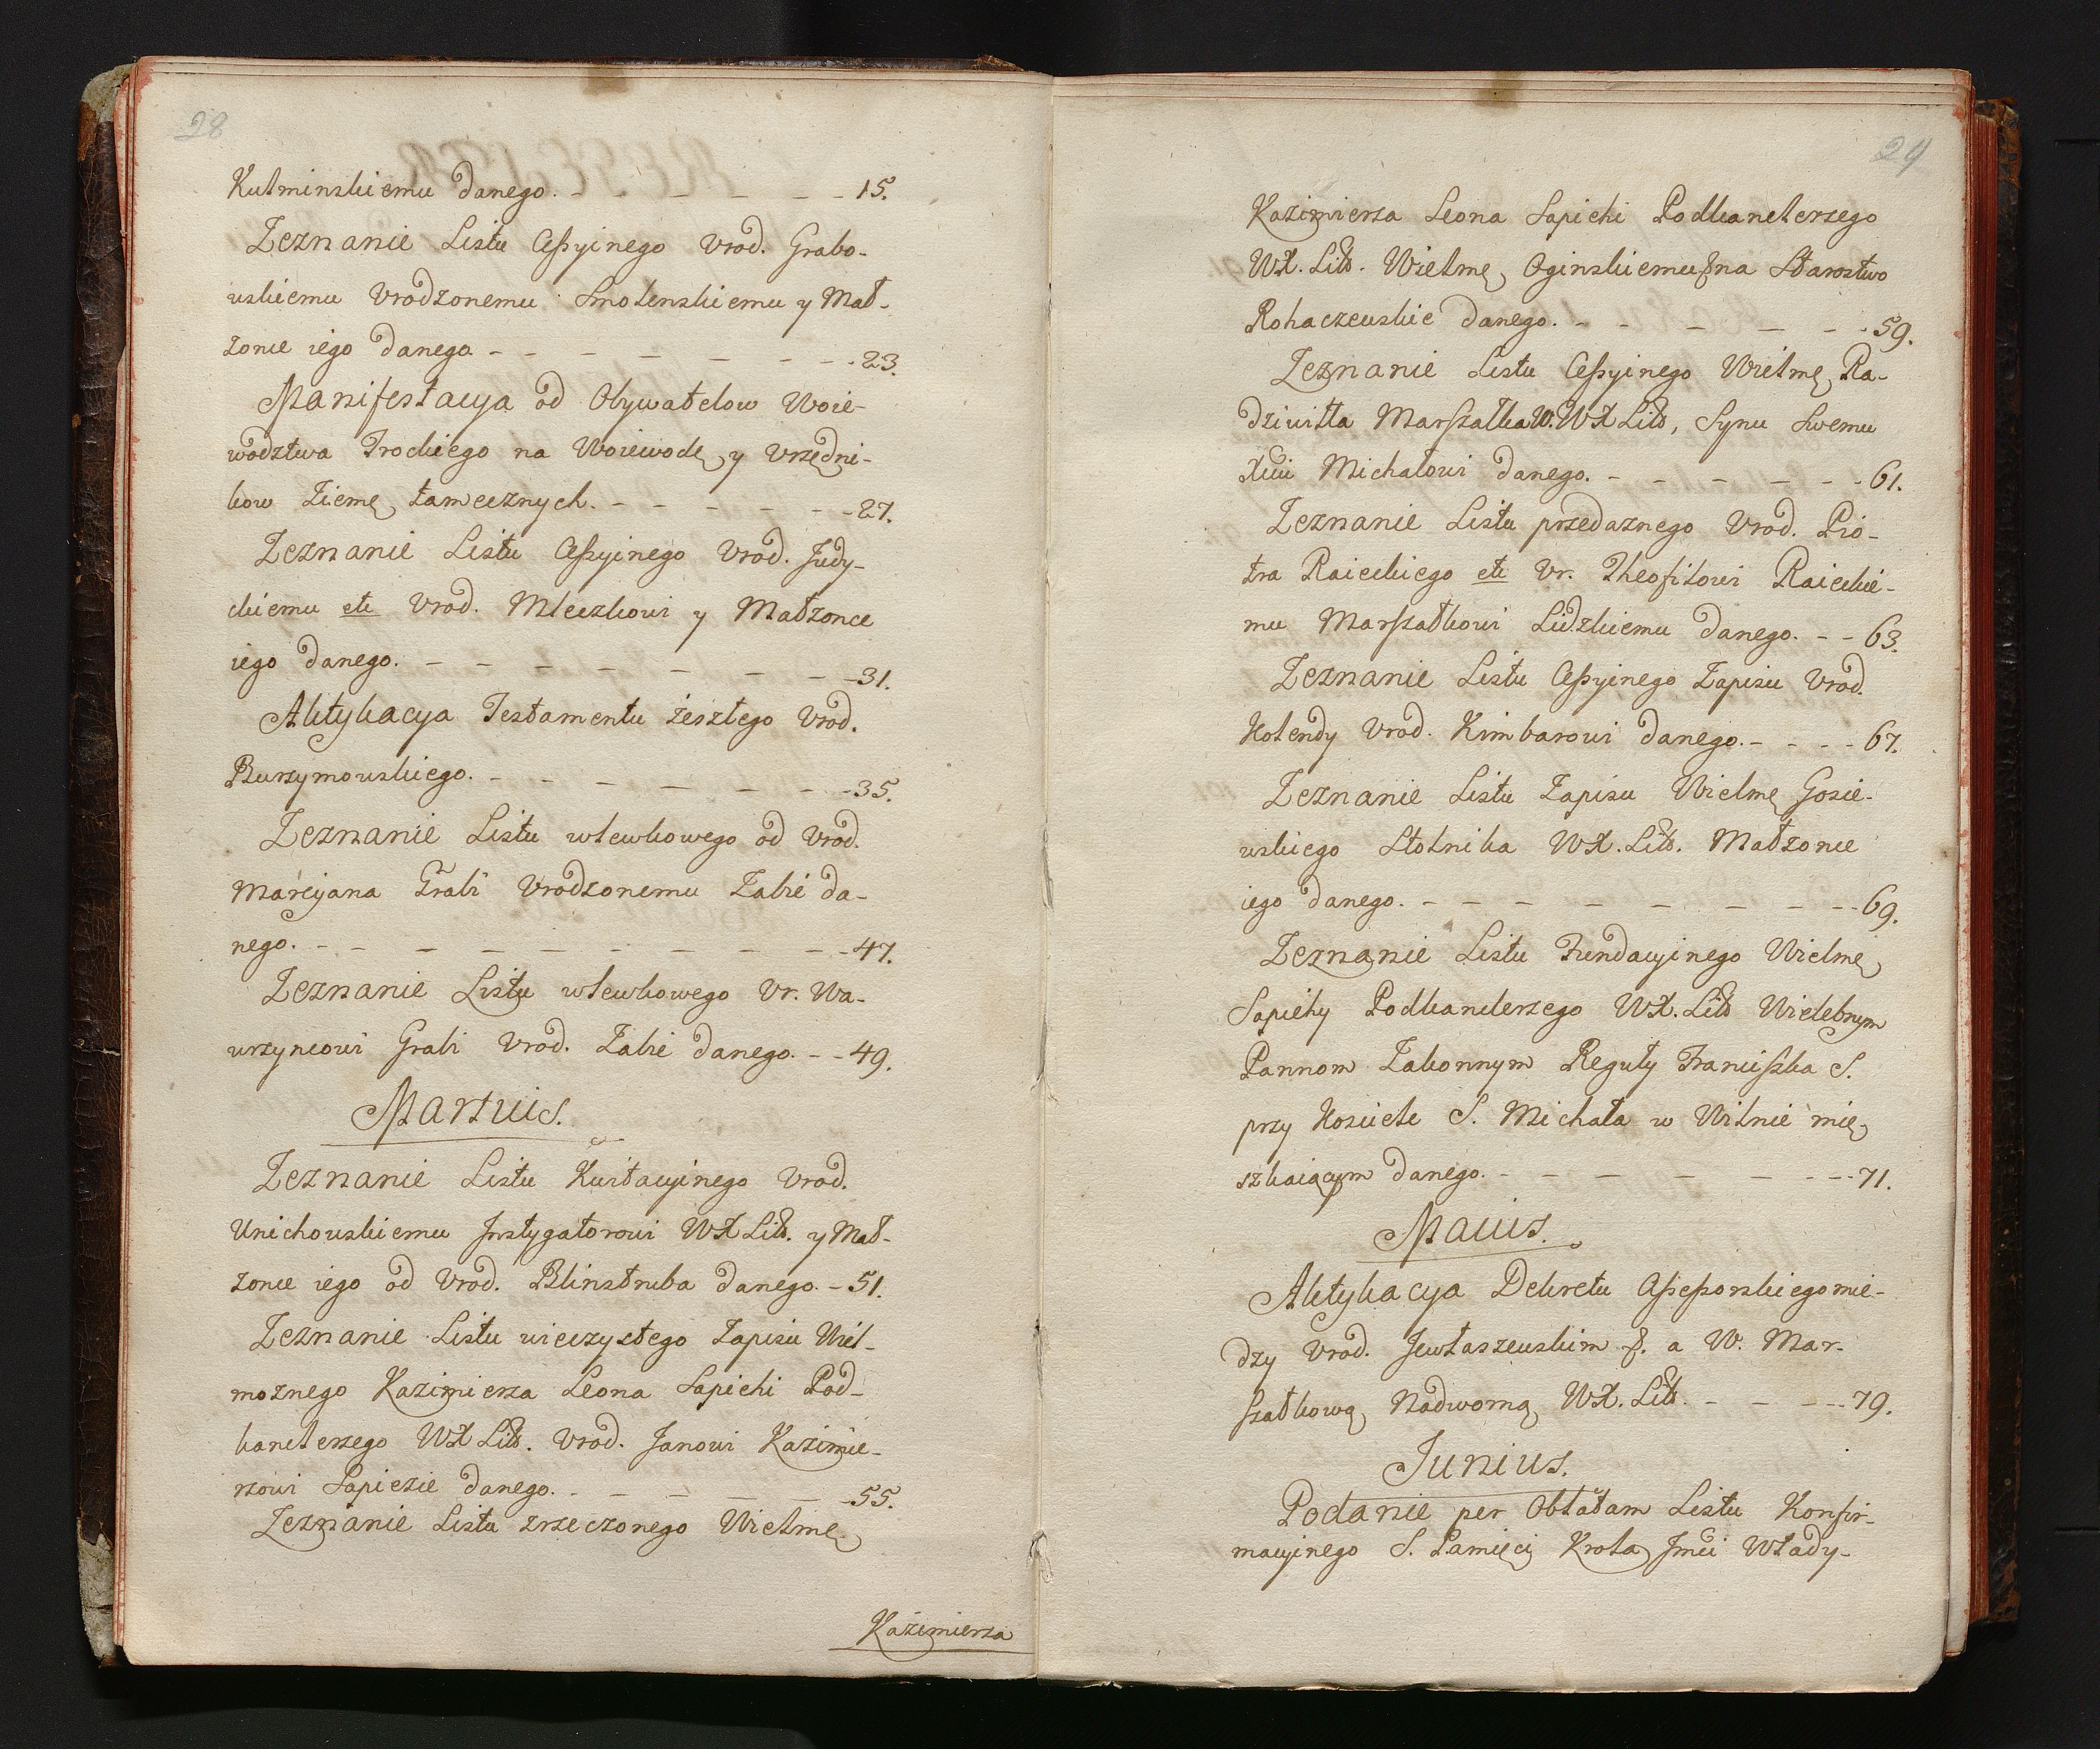 28
Kulminskiemu danego. - - - - - - 15.
Zeznanie Listu Cessyinego Vrod. Grabo-
wskiemu Vrodzonemu Smolenskiemu y Mał-
zonce iego danego - - - - - - - - 23.
Manifestacya od Obywatelow Woie-
wodztwa Trockiego na Woiewodę y Vrzędni-
kow Ziemę tamecznych. - - - - - - 27.
Zeznanie Listu Cessyinego Vrod. Judy-
ckiemu etc Vrod. Mleczkowi y Małzonce
iego danego. - - - - - - - - 31.
Aktykacya Testamentu zeszłego Vrod.
Burzymowskiego. - - - - - - - 35.
Zeznanie Listu wlewkowego od Vrod.
Marcyana Grabi Vrodzonemu Zabie da-
nego. - - - - - - - - - - 47.
Zeznanie Listu wlewkowego Vr. Wa-
wrzyncowi Grabi Vrod. Zabie danego. - - 49.
Martius.
Zeznanie Listu Kwitacyinego Vrod.
Unichowskiemu Instygatorowi WX Litt. y Mał-
zonce iego od Vrod. Blinstruba danego. - 51.
Zeznanie Listu wieczystego Zapisu Wiel-
moznego Kazimierza Leona Sapiehi Pod-
kanclerzego WX Litt. Vrod. Janowi Kazimie-
rzowi Sapiezie danego. - - - - - 55.
Zeznanie Listu zrzeczonego Wielmę
Kazimierza
29
Kazimierza Leona Sapiehi Podkanclerzego
WX. Litt. Wielmę Oginskiemu na Starostwo
Rohaczewskie danego. - - - - - - 59.
Zeznanie Listu Cessyinego Wielmę Ra-
dziwiłła Marszałka W. WX Litt, Synu Swemu
Xciu Michałowi danego. - - - - - - 61.
Zeznanie Listu przedaznego Vrod. Pio-
tra Raieckiego etc Vr. Theofilowi Raieckie-
mu Marszałkowi Lidzkiemu danego. - - 63.
Zeznanie Listu Cessyinego Zapisu Vrod.
Kolendy Vrod. Kimbarowi danego. - - - - 67.
Zeznanie Listu Zapisu Wielmę Gosie-
wskiego Stolnika WX. Litt. Małzonce
iego danego. - - - - - - - - - 69.
Zeznanie Listu Fundacyinego Wielmę
Sapiehy Podkanclerzego WX. Litt Wielebnym
Pannom Zakonnym Reguły Franciszka S.
przy Kosciele S. Michała w Wilnie mię
szkaiącym danego. - - - - - - - 71.
Maius.
Aktykacya Dekretu Assessorskiego mie-
dzy Vrod. Jewłaszewskim &. a W. Mar-
szałkową Nadworną WX. Litt. - - - - - 79.
Junius.
Podanie per Oblatam Listu Konfir-
macyinego S. Pamięci Krola Jmci Włady-